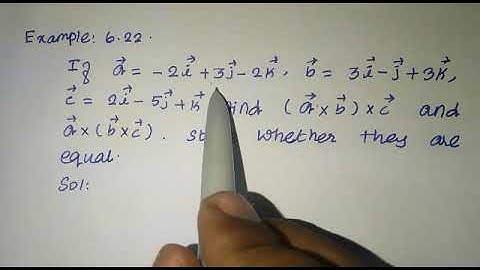 Example: 6.22.
If a⃗ = -2i⃗ + 3j⃗ - 2k⃗, b⃗ = 3i⃗ - j⃗ + 3k⃗,
c⃗ = 2i⃗ - 5j⃗ + k⃗ find (a⃗ × b⃗) × c⃗ and
a⃗ × (b⃗ × c⃗). whether they are
equal.
Sol: